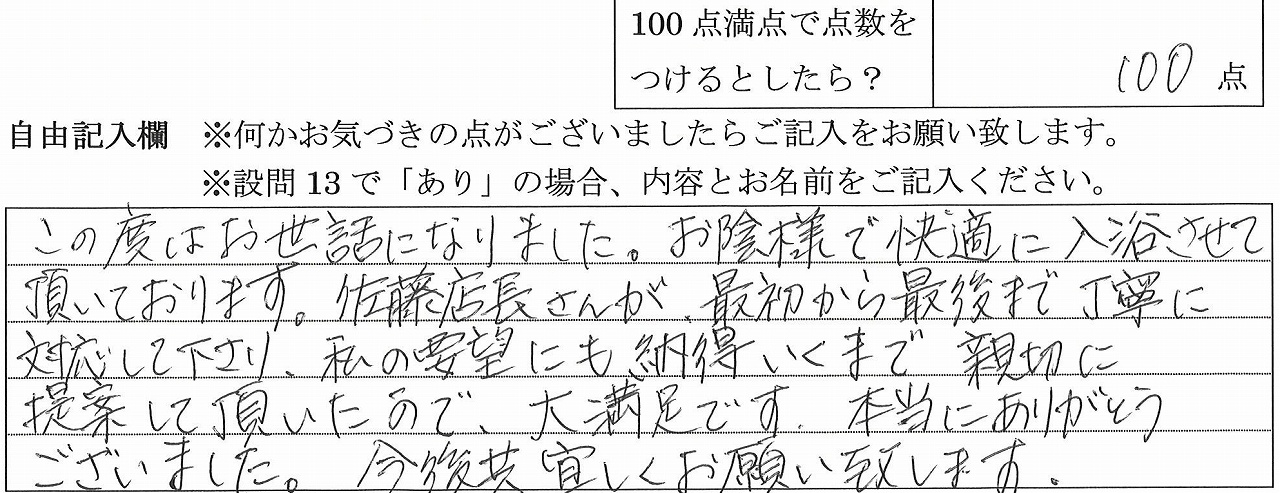 100点満点で点数を
つけるとしたら？
100 点
自由記入欄 ※何かお気づきの点がございましたらご記入をお願い致します。
※設問13で「あり」の場合、内容とお名前をご記入ください。
この度はお世話になりました。お陰様で快適に入浴させて
頂いております。佐藤店長さんが、最初から最後まで丁寧に
対応して下さり、私の要望にも納得いくまで親切に
提案して頂いたので、大満足です。本当にありがとう
ございました。今後共宜しくお願い致します。